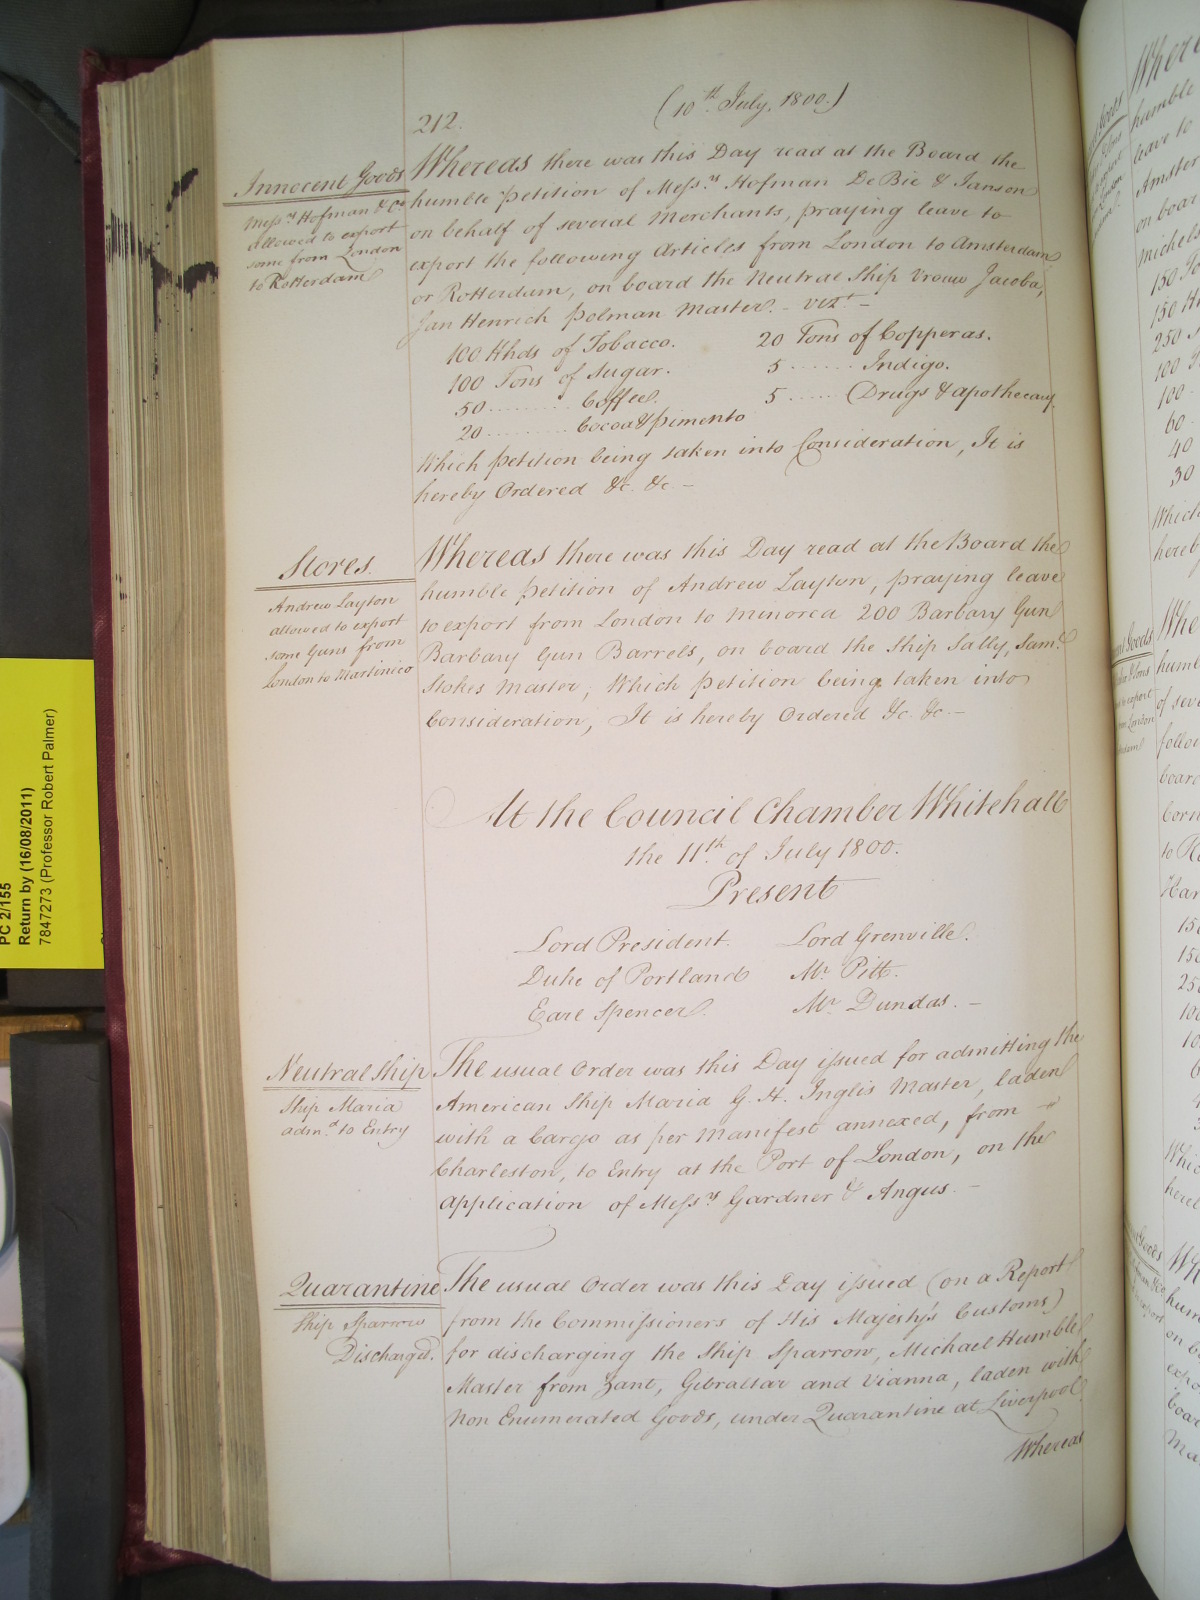 (10th July, 1800.)
212.
Innocent Goods
Messrs Hofman & Co
allowed to export
some from London
to Rotterdam
Whereas there was this Day read at the Board the
humble Petition of Messrs Hofman DeBie & Janson
on behalf of several Merchants, praying leave to
export the following Articles from London to Amsterdam
or Rotterdam, on board the Neutral Ship Vrouw Jacoba,
Jan Henrich Polman Master. - Vizt -
100 Hhds of Tobacco. 20 Tons of Copperas.
100 Tons of Sugar. 5 ...... Indigo.
50 ......... Coffee. 5 ..... Drugs & apothecary
20 ......... Cocoa & Pimento
Which Petition being taken into Consideration, It is
hereby Ordered &c. &c. -
Stores.
Andrew Layton
allowed to export
some Guns from
London to Martinico
Whereas there was this Day read at the Board the
humble Petition of Andrew Layton, praying leave
to export from London to Minorca 200 Barbary Gun
Barbary Gun Barrels, on board the Ship Sally, Saml
Stokes Master; Which Petition being taken into
Consideration, It is hereby Ordered &c. &c. -
At the Council Chamber Whitehall
the 11th of July 1800.
Present
Lord President. Lord Grenville.
Duke of Portland Mr Pitt.
Earl Spencer. Mr Dundas. -
Neutral Ship
Ship Maria
admd to Entry
The usual Order was this Day issued for admitting the
American Ship Maria G. H. Inglis Master, laden
with a Cargo as per Manifest annexed, from
Charleston, to Entry at the Port of London, on the
application of Messrs Gardner & Angus. -
Quarantine
Ship Sparrow
Discharged.
The usual Order was this Day issued (on a Report
from the Commissioners of His Majesty's Customs)
for discharging the Ship Sparrow, Michael Humble
Master from Zant, Gibraltar and Vianna, laden with
Non Enumerated Goods, under Quarantine at Liverpool.
Whereas
PC 2/155
Return by (16/08/2011)
7847273 (Professor Robert Palmer)
Where
humble
leave to
Amster
on boar
Michels
150
150
250
100
100
60
40
30
Which
hereb
Whe
humb
of seve
follow
board
Corn
to
Har